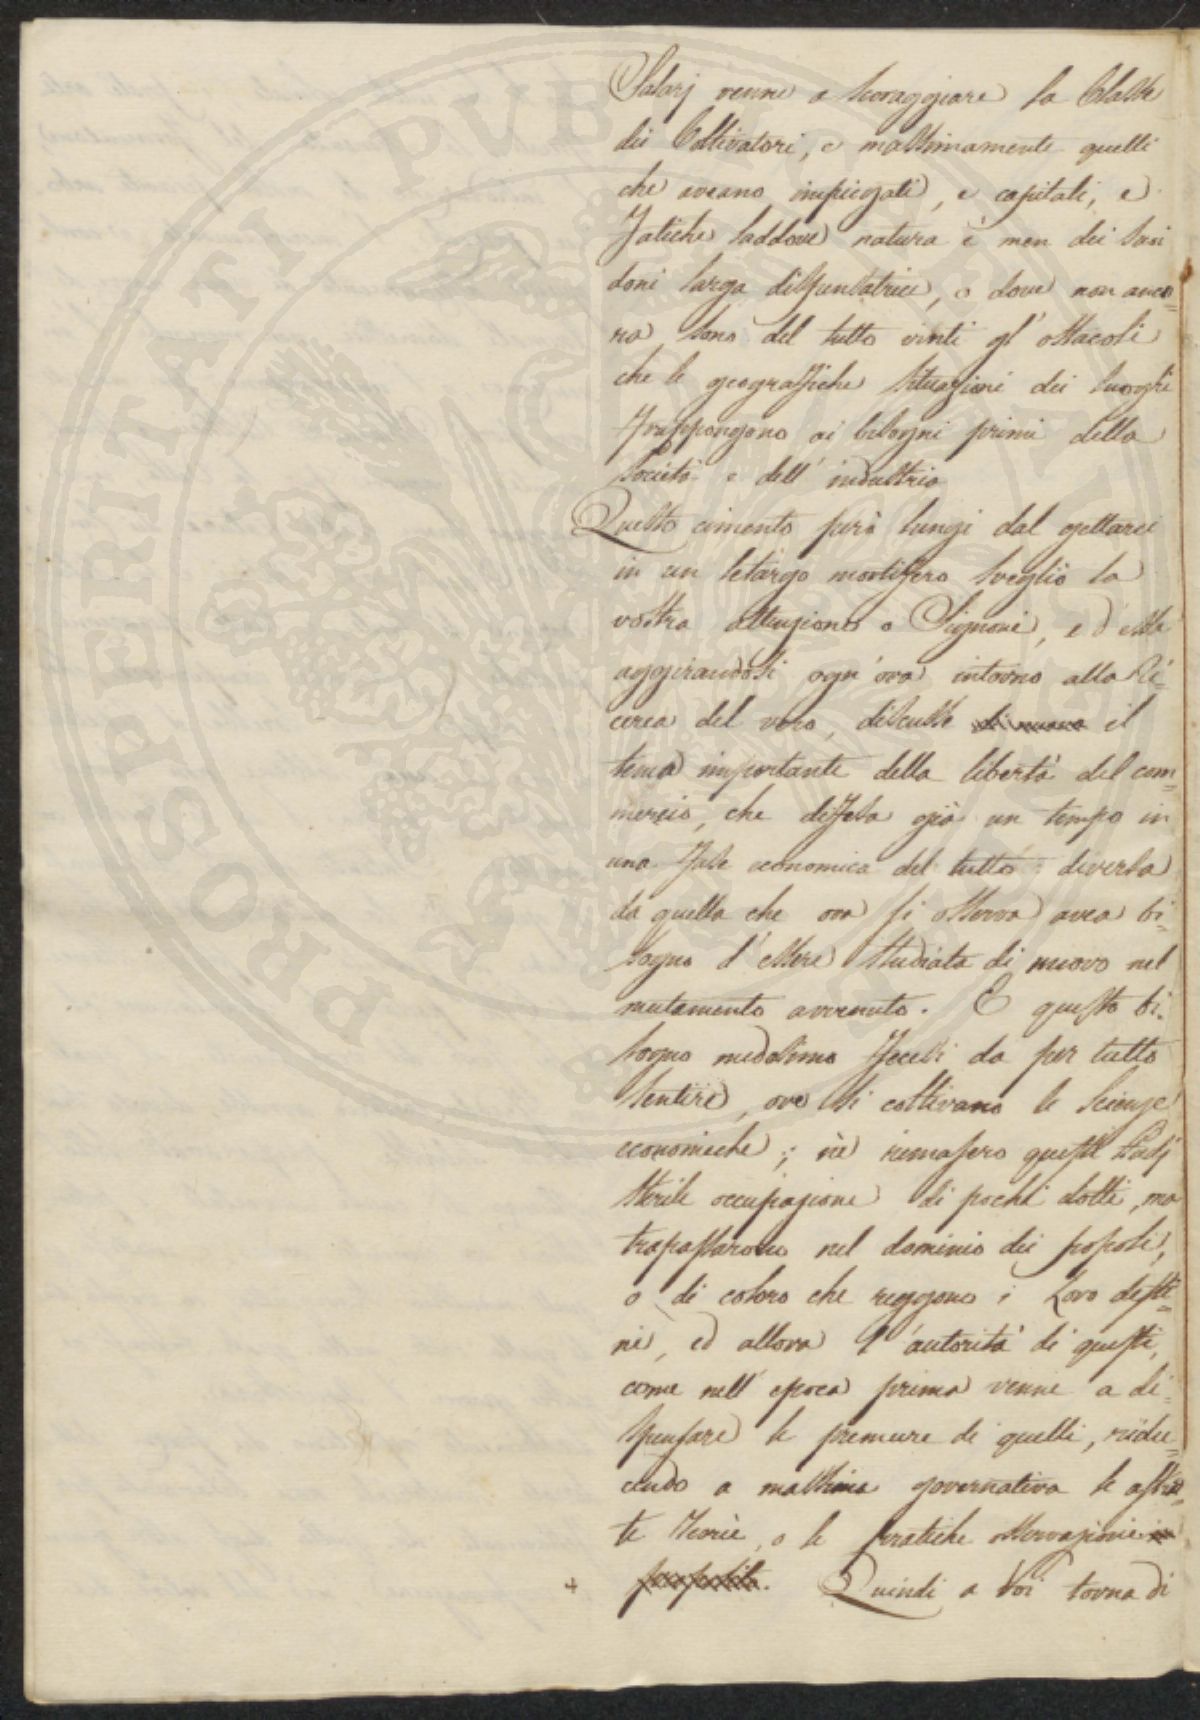 Salarj venne a scoraggiare la Classe
dei Coltivatori, e massimamente quelli
che aveano impiegati, e capitali, e
fatiche laddove natura è men dei suoi
doni larga dispensatrice, o dove non anco=
ra sono del tutto vinti gl'ostacoli
che le geografiche situazioni dei luoghi
frappongono ai bisogni primi della
società e dell'industria
Questo cimento però lungi dal gettarci
in un letargo mortifero svegliò la
vostra attenzione o Signori, ed essa
aggirandosi ogn'ora intorno alla Ri=
cerca del vero, discusse di nuovo il
tema importante della libertà del com=
mercio, che difesa già un tempo in
una fase economica del tutto diversa
da quella che ora si osserva avea bi=
sogno d'essere studiata di nuovo nel
mutamento avvenuto. E questo bi=
sogno medesimo fecesi da per tutto
sentire, ove si coltivano le Scienze
economiche; nè rimasero questi studj
sterile occupazione di pochi dotti, ma
trapassarono nel dominio dei popoli,
o di coloro che reggono i Loro desti=
ni, ed allora l'autorità di questi,
come nell'epoca prima venne a di=
spensare le premure di quelli, ridu=
cendo a massima governativa le astrat=
te teorie, o le pratiche osservazioni in
proposito. Quindi a Voi torna di
+
PROSPERITATI PUBLICAE